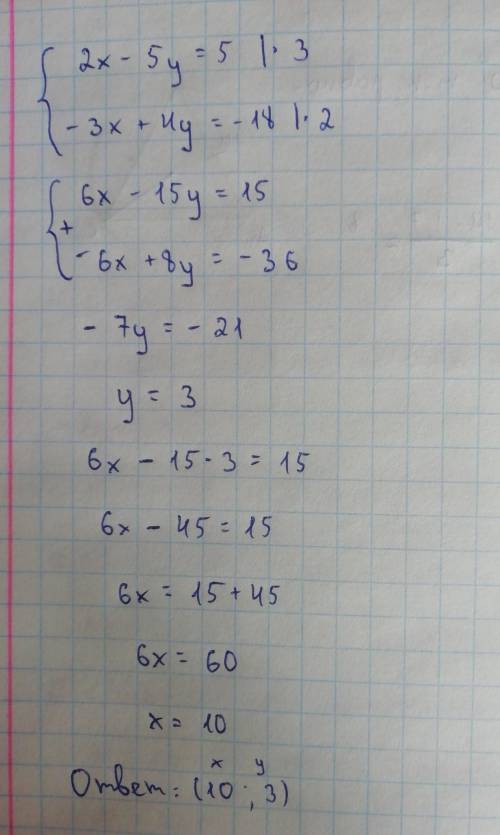 2x - 5y = 5 |· 3
- 3x + 4y = - 18 |· 2
6x - 15y = 15
+
- 6x + 8y = - 36
- 7y = - 21
y = 3
6x - 15 · 3 = 15
6x - 45 = 15
6x = 15 + 45
6x = 60
x = 10
x y
Ответ: (10 ; 3)